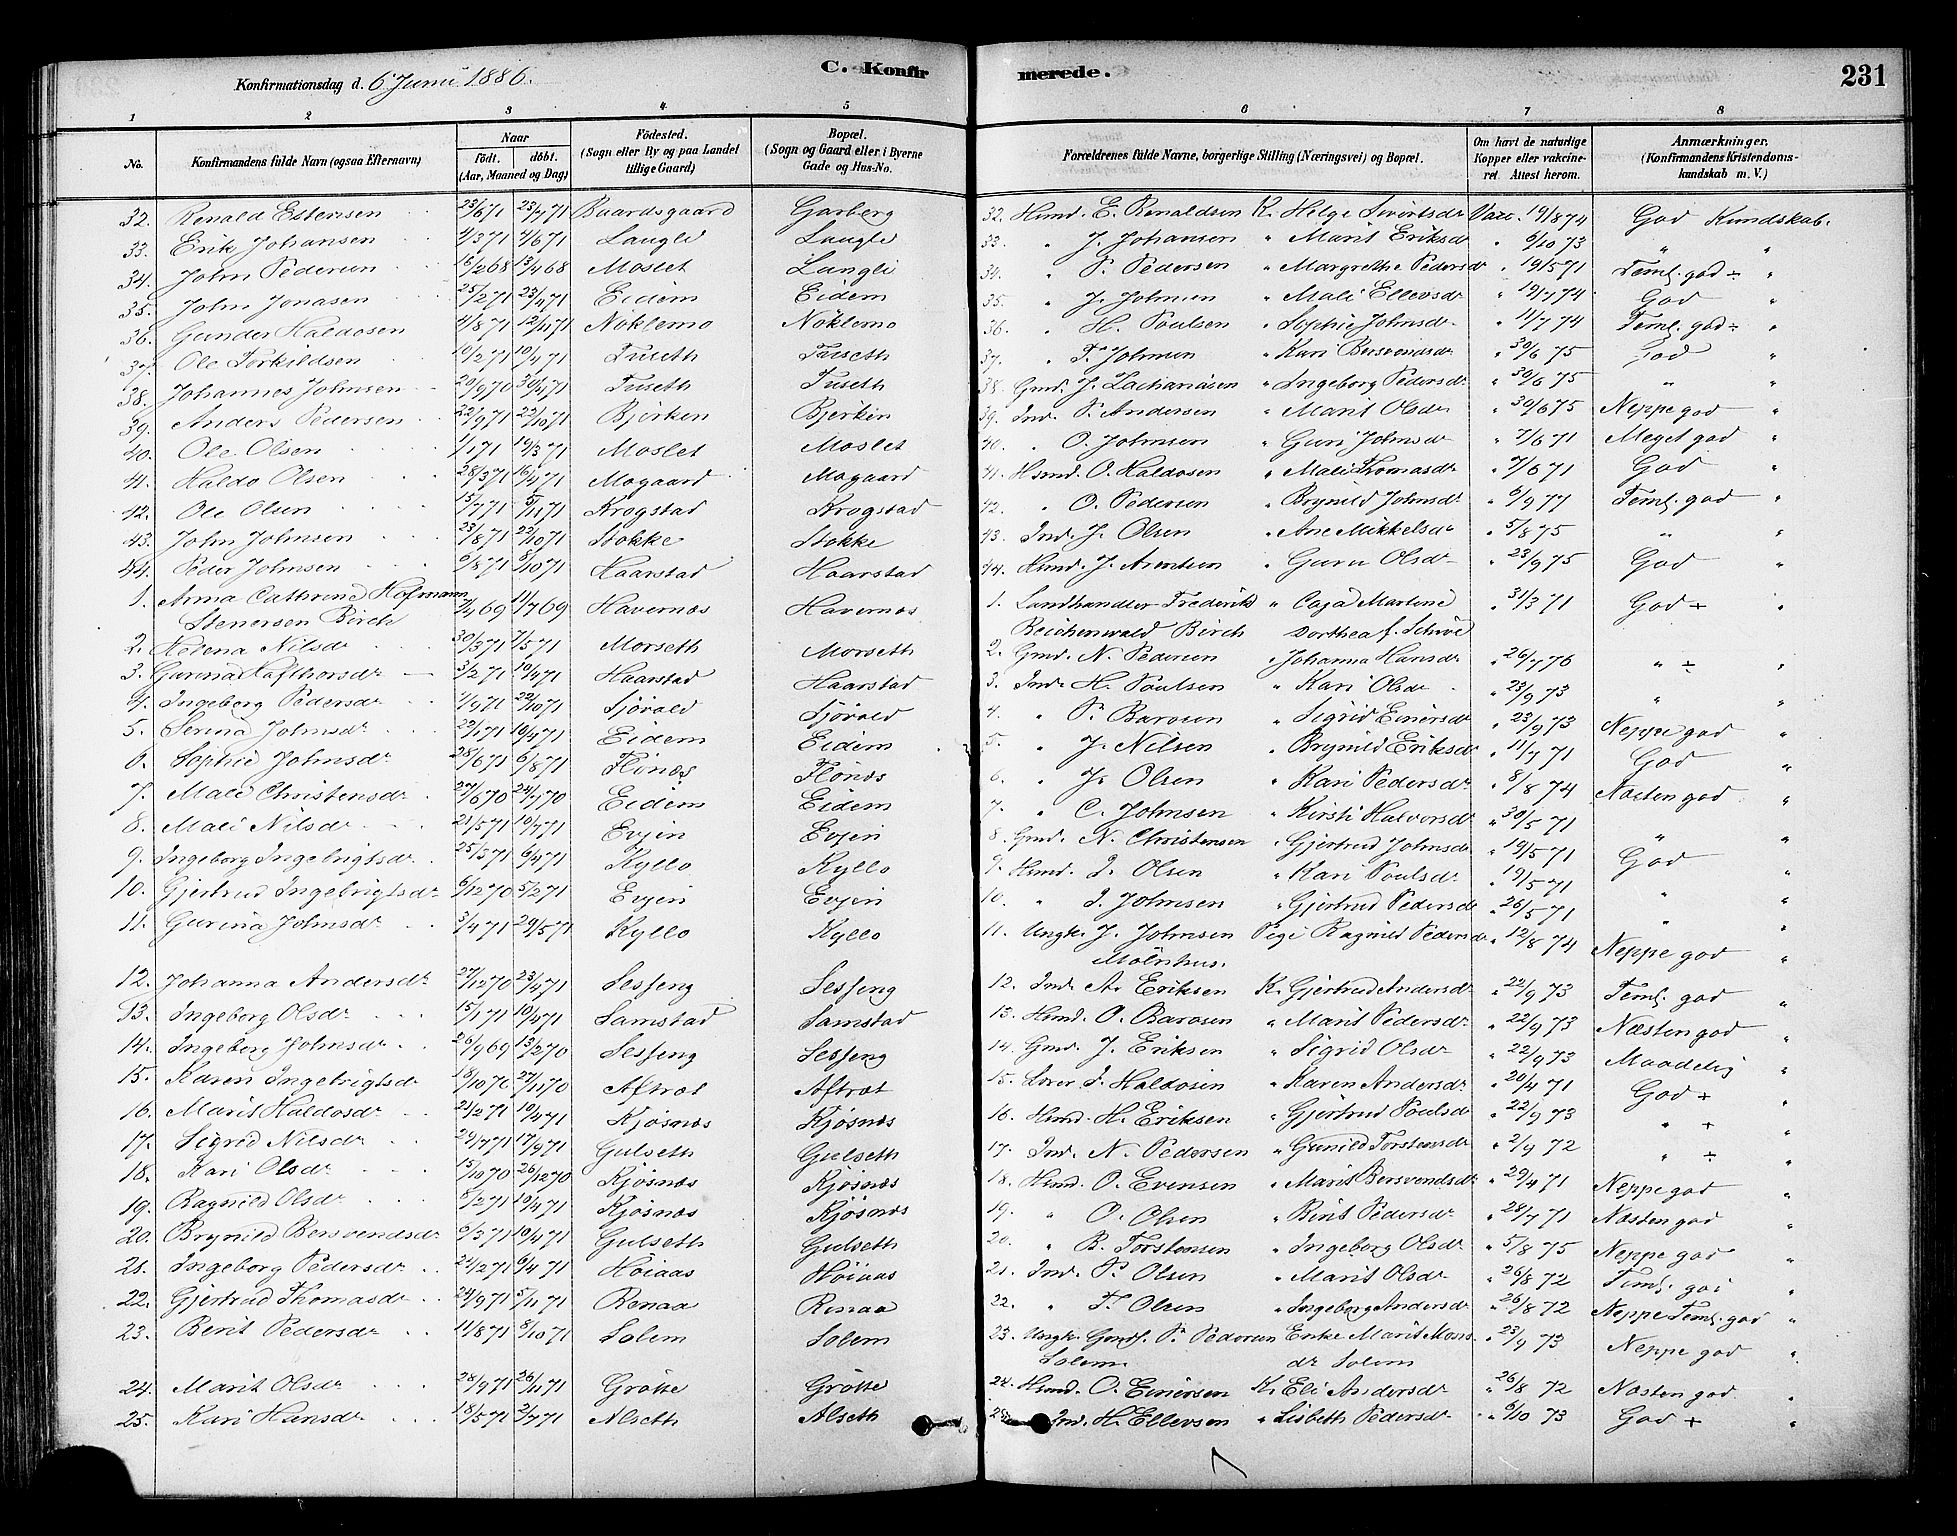 Konfirmationsdag d. 6 Juni 1886.
C. Konfirmerede.
231
1 2 3 4 5 6 7 8
No. Konfirmandens fulde Navn (ogsaa Efternavn) Naar födt. döbt. (Aar, Maaned og Dag) Födested. (Sogn eller By og paa Landet tillige Gaard) Bopæl. (Sogn og Gaard eller i Byerne Gade og Hus-No. Forældrenes fulde Navne, borgerlige Stilling (Næringsvei) og Bopæl. Om havt de naturlige Kopper eller vakcineret. Attest herom. Anmærkninger. (Konfirmandens Kristendomskundskab m. V.)
32. Renald Estensen 23/6 71 23/7 71 Baardsgaard Garberg 32. Hmd. E. Renaldsen K. Helge Sivertsdr Vacc. 19/8 74 God Kundskab.
33. Erik Johansen 4/3 71 4/6 71 Langli Langli 33. " J. Johansen " Marit Eriksdr " 6/10 73 " "
34. John Pedersen 16/2 68 13/4 68 Moslet Langli 34. " P. Pedersen " Margrethe Pedersdr " 19/5 71 Teml. god ÷ "
35. John Jonasen 25/2 71 23/4 71 Eidem Eidem 35. " J. Johnsen " Mali Ellevsdr " 19/7 74 God "
36. Gunder Haldosen 4/8 71 12/11 71 Nöklemo Nöklemo 36. " H. Poulsen " Sophie Johnsdr " 11/7 74 Teml. god ÷ "
37. Ole Torkildsen 10/2 71 10/4 71 Tuseth Tuseth 37. " T. Johnsen " Kari Bersvendsdr " 30/6 75 God "
38. Johannes Johnsen 20/9 70 30/4 71 Tuseth Tuseth 38. Gmd. J. Zachariasen " Ingeborg Pedersdr " 30/6 75 " "
39. Anders Pedersen 22/9 71 22/10 71 Bjerken Bjerken 39. Ind. P. Andersen " Marit Olsdr " 30/6 75 Neppe god "
40. Ole Olsen 1/1 71 19/3 71 Moslet Moslet 40. " O. Johnsen " Guri Johnsdr " 7/6 71 Meget god "
41. Haldo Olsen 28/3 71 16/4 71 Mogaard Mogaard 41. Hsmd. O. Haldosen " Mali Thomasdr " 7/6 71 God "
42. Ole Olsen 15/7 71 5/11 71 Krogstad Krogstad 42. " O. Pedersen " Brynild Johnsdr " 6/9 77 Teml. god "
43. John Johnsen 23/8 71 22/10 71 Stokke Stokke 43. Ind. J. Olsen " Ane Mikkelsdr " 5/8 75 " "
44. Peder Johnsen 6/8 71 8/10 71 Haarstad Haarstad 44. Hmd. J. Arentsen " Guru Olsdr " 23/9 75 God "
1. Anna Cathrine Hofmann 7/4 69 11/7 69 Havernæs Havernæs 1. Landhandler Frederik " Caja Martine " 31/3 71 God + "
Stenersen Birch Reichenwald Birch Dorthea f.
2. Helena Nilsdr 30/3 71 7/5 71 Morseth Morseth 2. Gmd. N. Pedersen " Johanna Hansdr " 26/7 76 " ÷ "
3. Gurina Hafthorsdr 3/2 71 10/4 71 Haarstad Haarstad 3. Ind. H. Poulsen " Kari Olsdr " 23/9 73 " "
4. Ingeborg Pedersdr 1/9 71 22/10 71 Sjövold Sjövold 4. " P. Barosen " Sigrid Einersdr " 23/9 73 Neppe god "
5. Serina Johnsdr 22/1 71 10/4 71 Eidem Eidem 5. " J. Nilsen " Brynild Eriksdr " 11/7 71 God "
6. Sophie Johnsdr 28/6 71 6/8 71 Flönæs Flönæs 6. " J. Olsen " Kari Pedersdr " 8/8 74 Næsten god "
7. Mali Christensdr 27/6 70 24/7 70 Eidem Eidem 7. " C. Johnsen " Kirsti Halvorsdr " 30/5 71
8. Mali Nilsdr 21/5 71 10/7 71 Evjen Evjen 8. Gmd. N. Christensen " Gjertrud Johnsdr " 19/5 71 " "
9. Ingeborg Ingebrigtsdr 25/3 71 6/4 71 Kyllo Kyllo 9. Hsmd. I. Olsen " Kari Poulsdr " 19/5 71 God "
10. Gjertrud Ingebrigtsdr 6/12 70 5/2 71 Evjen Evjen 10. " I. Johnsen " Gjertrud Pedersdr " 26/5 71 " "
11. Gurina Johnsdr 3/4 71 29/5 71 Kyllo Kyllo 11. Ungk. J. Johnsen Pige Ragnild Pedersdr " 12/8 74 Neppe god "
Mölnhus.
12. Johanna Andersdr 27/12 70 23/4 71 Sesseng Sesseng 12. Ind. A. Eriksen K. Gjertrud Andersdr " 22/9 73 Teml. god "
13. Ingeborg Olsdr 15/1 71 10/4 71 Samstad Samstad 13. Hsmd. O. Barosen " Marit Pedersdr " 22/9 73 Næsten god "
14. Ingeborg Johnsdr 26/9 69 13/2 70 Sesseng Sesseng 14. Gmd. J. Eriksen " Sigrid Olsdr " 22/9 73 Maadelig "
15. Karen Ingebrigtsdr 18/10 70 27/11 70 Aftret Aftret 15. Lærer I. Haldosen " Karen Andersdr " 20/4 71 God + "
16. Marit Haldosdr 21/2 71 10/4 71 Kjösnæs Kjösnæs 16. Hsmd. H. Eriksen " Gjertrud Poulsdr " 22/9 73 " + "
17. Sigrid Nilsdr 29/7 71 17/9 71 Gulseth Gulseth 17. Ind. N. Pedersen " Gunild Torstensdr " 2/9 72 " ÷ "
18. Kari Olsdr 15/10 70 26/12 70 Kjösnæs Kjösnæs 18. Hsmd. O. Evensen " Marit Bersvendsdr " 29/4 71 Neppe god "
19. Ragnild Olsdr 8/2 71 10/4 71 Kjösnæs Kjösnæs 19. " O. Olsen " Berit Pedersdr " 28/7 71 Næsten god "
20. Brynild Bersvendsdr 6/3 71 10/4 71 Gulseth Gulseth 20. " B. Torstensen " Ingeborg Olsdr " 5/8 75 Neppe god "
21. Ingeborg Pedersdr 22/2 71 6/4 71 Höiaas Höiaas 21. Ind. P. Olsen " Marit Olsdr " 26/8 72 Teml. god "
22. Gjertrud Thomasdr 24/9 71 5/11 71 Renaa Renaa 22. " T. Olsen " Ingeborg Andersdr " 26/8 72 Neppe Teml. god "
23. Berit Pedersdr 11/8 71 8/10 71 Solem Solem 23. Ungk. P. Pedersen Enke Marit Mons " 23/9 73 Neppe god "
Solem. dr Solem
24. Marit Olsdr 28/9 71 26/11 71 Grötte Grötte 24. Hsmd. O. Einersen K. Eli Andersdr " 26/8 72 Næsten god "
25. Kari Hansdr 18/5 71 2/7 71 Alseth Alseth 25. Ind. H. Ellevsen " Lisbeth Pedersdr " 6/10 73 God + "